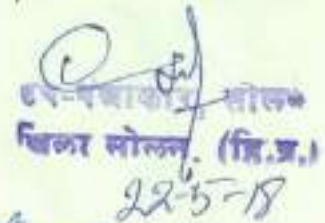 उप-पंजीकार, सोलन
जिला सोलन. (हि.प्र.)
22-5-18